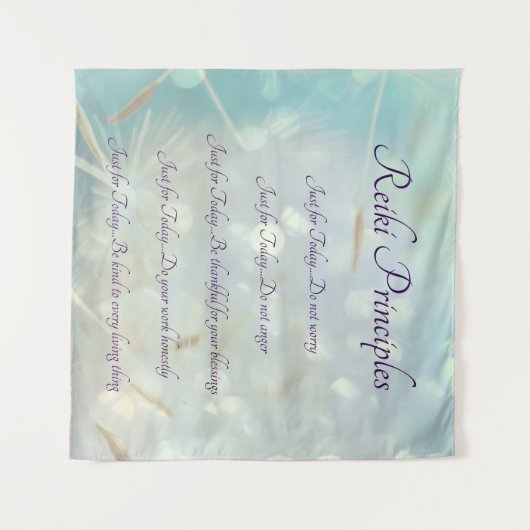 Reiki Principles
Just for Today...Do not worry
Just for Today...Do not anger
Just for Today...Be thankful for your blessings
Just for Today...Do your work honestly
Just for Today...Be kind to every living thing